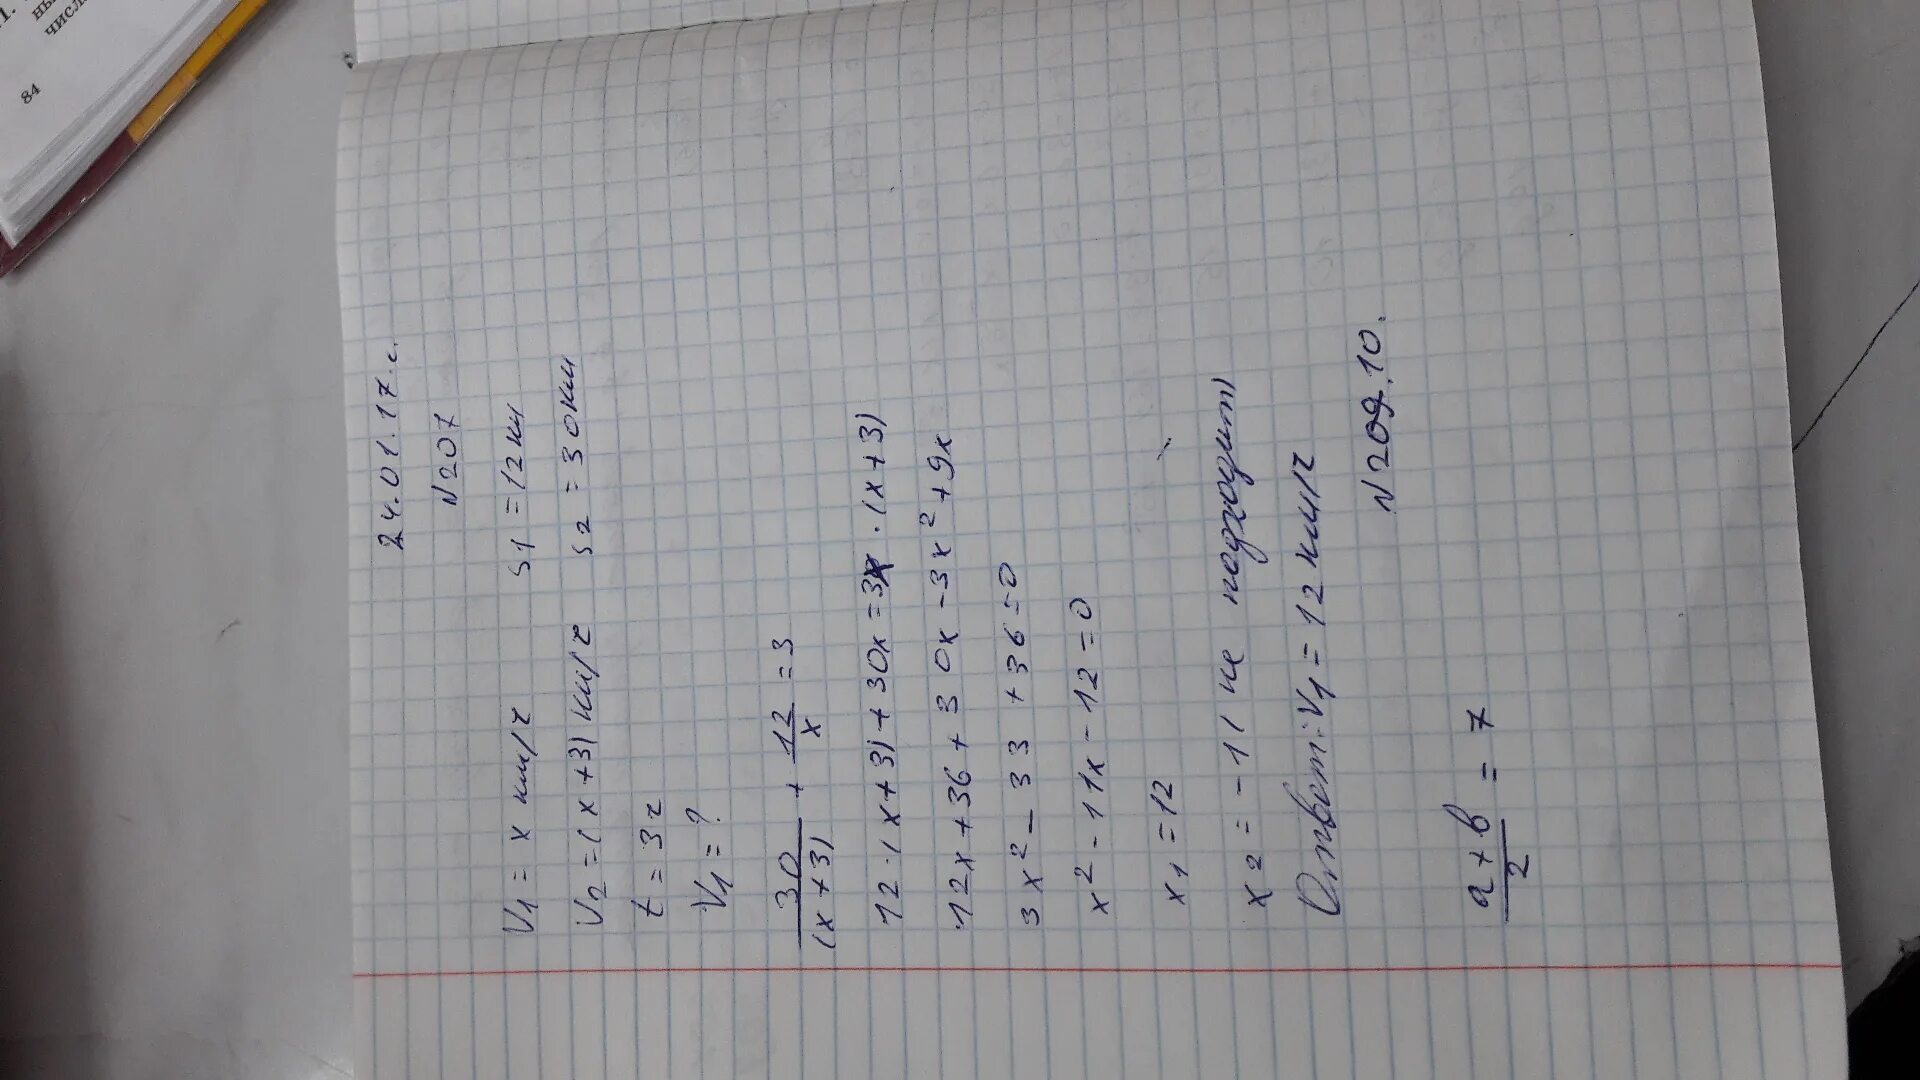 24.01.17.г.
N207
V₁ = x км/ч S₁ = 12км
V₂ = (x+3) км/ч S₂ = 30км
t = 3ч
V₁ = ?
30/(x+3) + 12/x = 3
12·(x+3) + 30x = 3x·(x+3)
12x + 36 + 30x - 3x² + 9x
3x² - 33 + 36 = 0
x² - 11x - 12 = 0
x₁ = 12
x₂ = -1 (не подходит)
Ответ: V₁ = 12 км/ч
N209.10.
(a+b)/2 = 7
84
числ